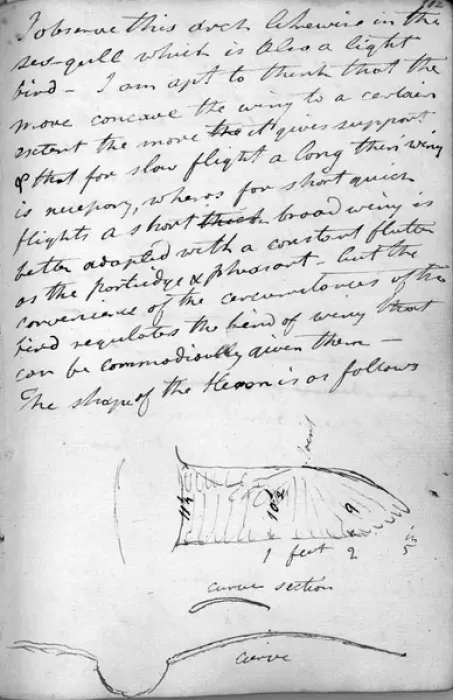 I observe this arch likewise in the
sea-gull which is also a light
bird - I am apt to think that the
more concave the wing to a certain
extent the more the it gives support
& that for slow flight a long thin wing
is necessary, wheras for short quick
flights a short thick broad wing is
better adapted with a constant flutter
as the partridge & pheasant - but the
convenience of the circumstances of the
bird regulates the kind of wing that
can be commodiously given them —
The shape of the Heron is as follows
11½
10½
9
1 feet 2
in
5
curve section
curve